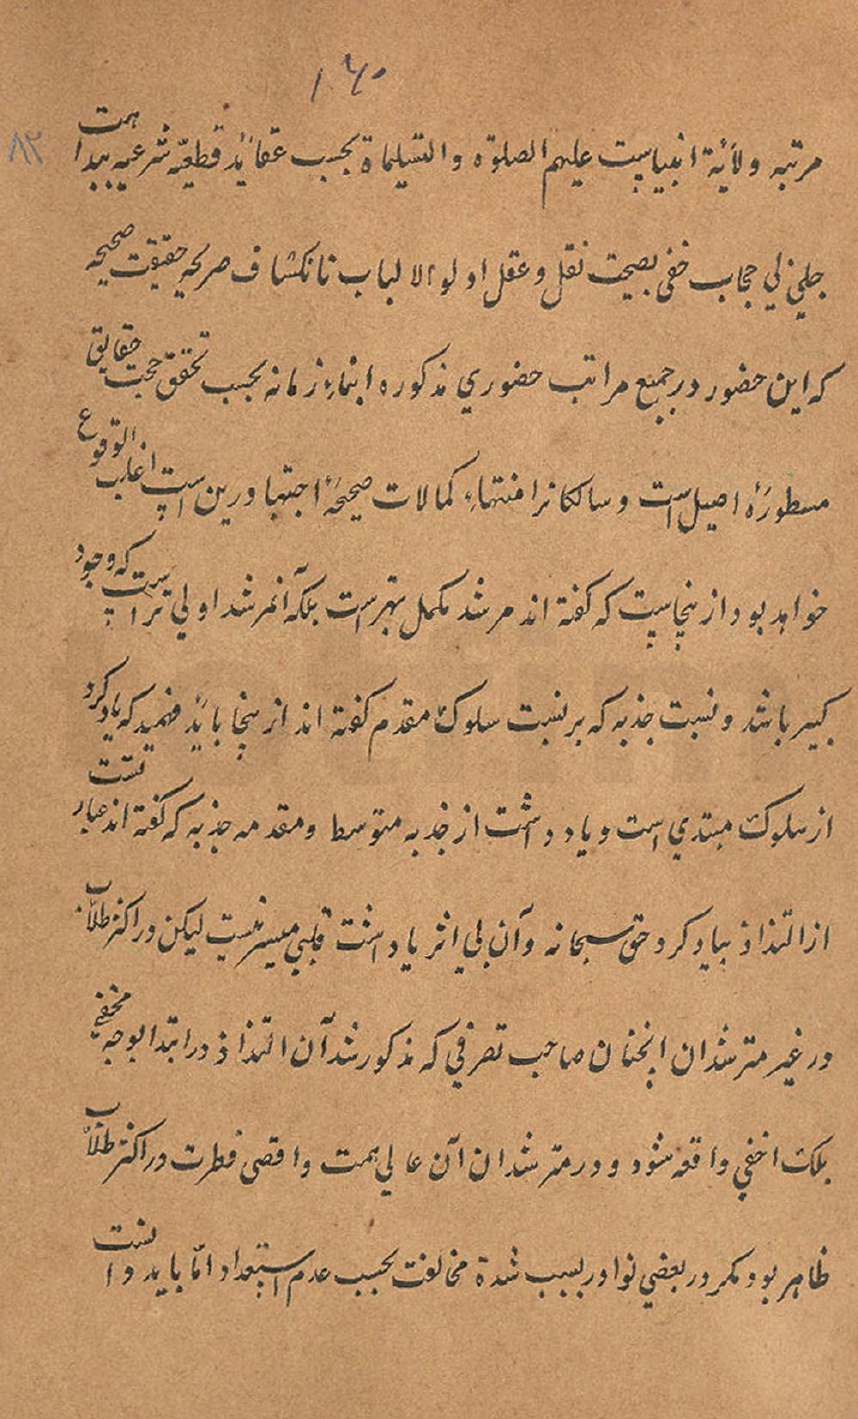 ۱۶۰
۸۲
مرتبه ولایة انبیاست علیهم الصلوة والتسلیماة بحسب عقاید قطعیه شرعیه ببداهت
جلی نی حجاب خفی بصحت نقل و عقل اولو الالباب تا نکشاف صریحه حقیقت صحیحه
که این حضور در جمیع مراتب حضوري مذکوره ابناء زمانه بحسب تحقق حجت حقایق
مسطورهٔ اصیل است و سالکانرا منتهاء کمالات صحیحهٔ اجتهاد و رین است اغلب الوقوع
خواهد بود ازینجاست که کفته اند مرشد مکمل بهتر است بلکه آنمرشد اولی تر است که وجود
کبیر باشد و نسبت جذبه که بر نسبت سلوک مقدم کفته اند ازینجا باید فهمید که یاد کرد
از سلوک مبتدي است و یاد داشت از جذبه متوسط و مقدمه جذبه که کفته اند عبارتست
از التذاذ بیاد کرد حق سبحانه وآن بی اثر یاد داشت قلبی میسر نیست لیکن در اکثر طلاب
در غیر مترشدان اینچنان صاحب تصرفی که مذکور شد آن التذاذ در ابتدا بوجه مخفی
بلکه اخفی واقعه شود و در مترشدان آن عالی همت واقصی فطرت در اکثر طلاب
ظاهر بود مکر در بعضی نوادر بسبب شدة مخالفت بحسب عدم استعداد امّا باید دانست